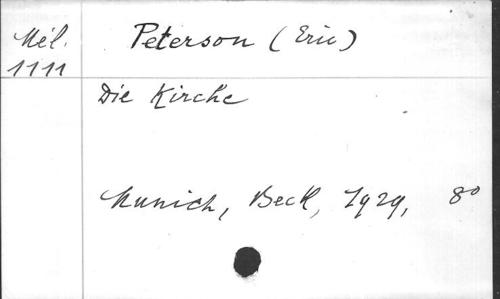 Mél. Peterson (Eric)
1111
Die Kirche
Munich, Beck, 1929, 8º